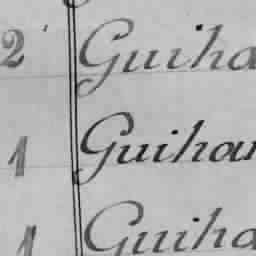 2 Guiha
1 Guihau
1 Guiha